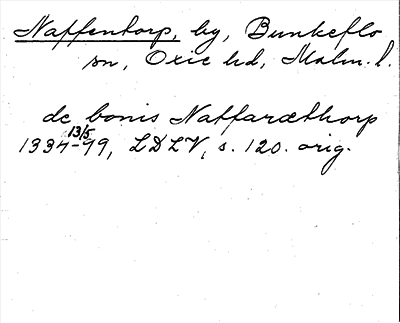 Naffentorp, by, Bunkeflo
sn, Oxie hd, Malm. l.
de bonis Naffaræthorp
13/5
1334-79, LDLV, s. 120. orig.